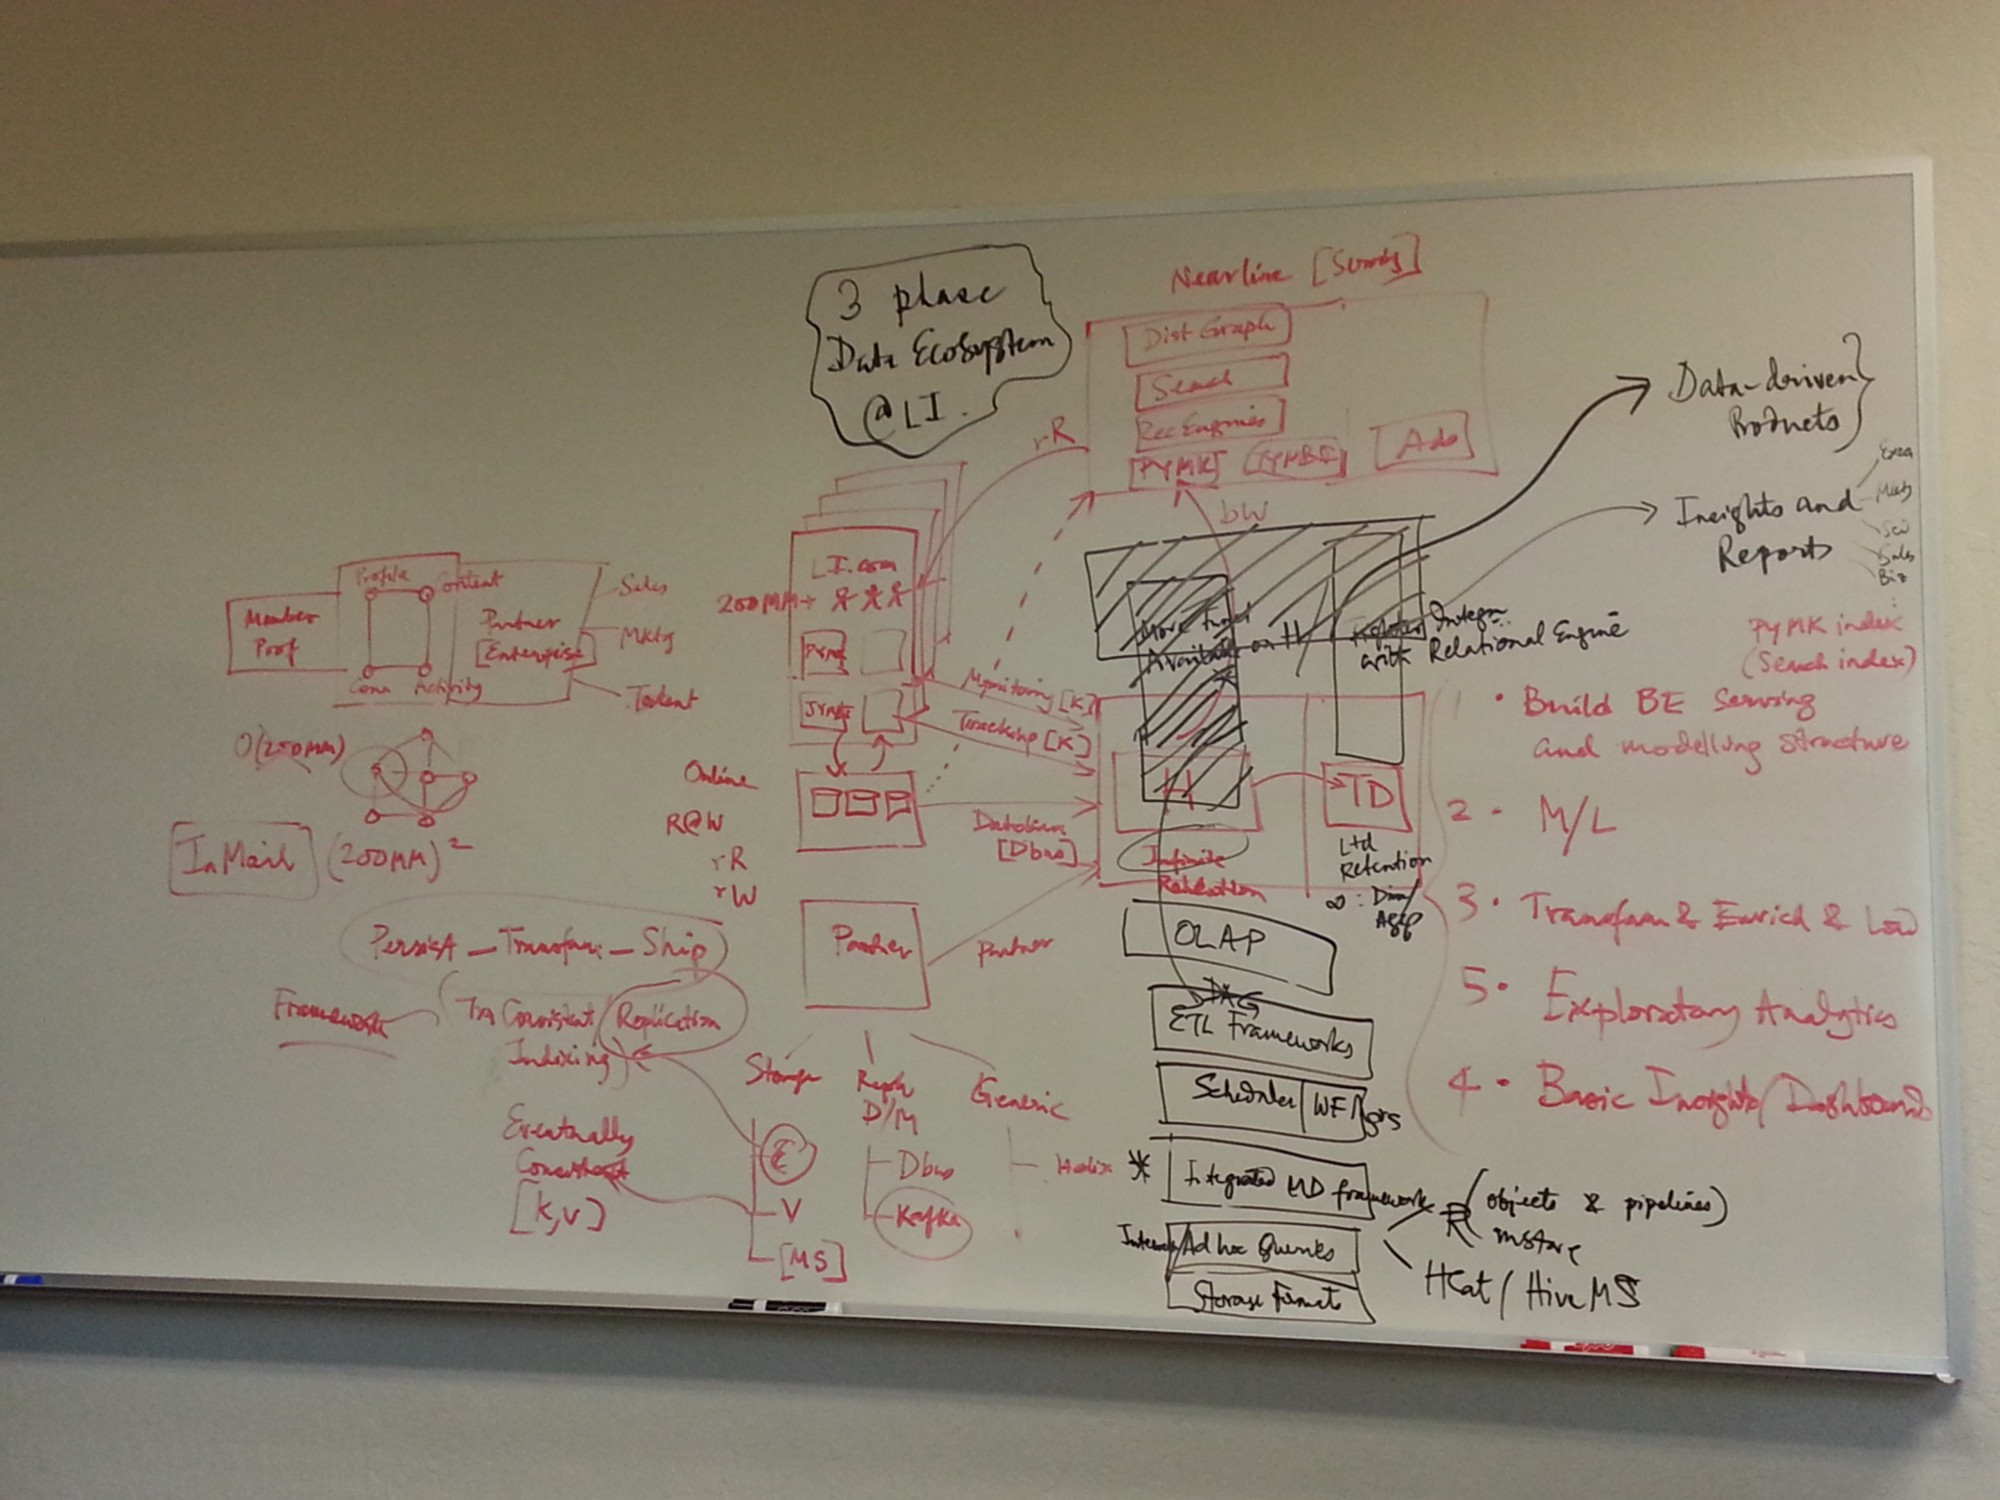 3 phase
Data Ecosystem
@LI.
Nearline
Dist Graph
Search
Rec Engines
PYMK
Ads
rR
bW
Data-driven
Products
Insights and
Reports
Mktg
Sales
LI.com
200MM+
Member
Prof
Profile
Content
Conn
Activity
Partner
[Enterprise]
Sales
Mktg
Talent
O(200MM)
InMail
(200MM)²
Online
R@W
rR
rW
Monitoring [K]
Tracking [K]
[Dbus]
More
Available on H
Integ
with Relational Engine
H
TD
Infinite
Retention
Ltd
Retention
∞ : Dim/
Agg
PYMK index
(Search index)
1 • Build BE Serving
and modelling structure
2 • M/L
3 • Transform & Enrich & Load
5 • Exploratory Analytics
4 • Basic Insights/Dashboards
Partner
Partner
Persist - Transform - Ship
Framework
Consistent
Replication
Indexing
Eventually
Consistent
[K,V]
Storage
E
V
[MS]
D/M
Dbus
Kafka
Generic
Helix
OLAP
ETL Frameworks
Scheduler
WF Mgrs
*
Integrated MD framework
(objects & pipelines)
mstore
HCat / Hive MS
Ad hoc Queries
Storage Formats